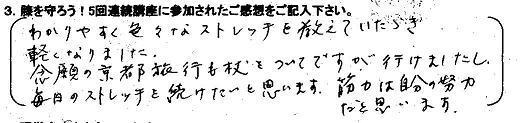 3. 膝を守ろう！5回連続講座に参加されたご感想をご記入下さい。
わかりやすく色々なストレッチを教えていただき
軽くなりました。
念願の京都旅行も杖をついてですが行けましたし、
毎日のストレッチを続けたいと思います。筋力は自分の努力
だと思います。